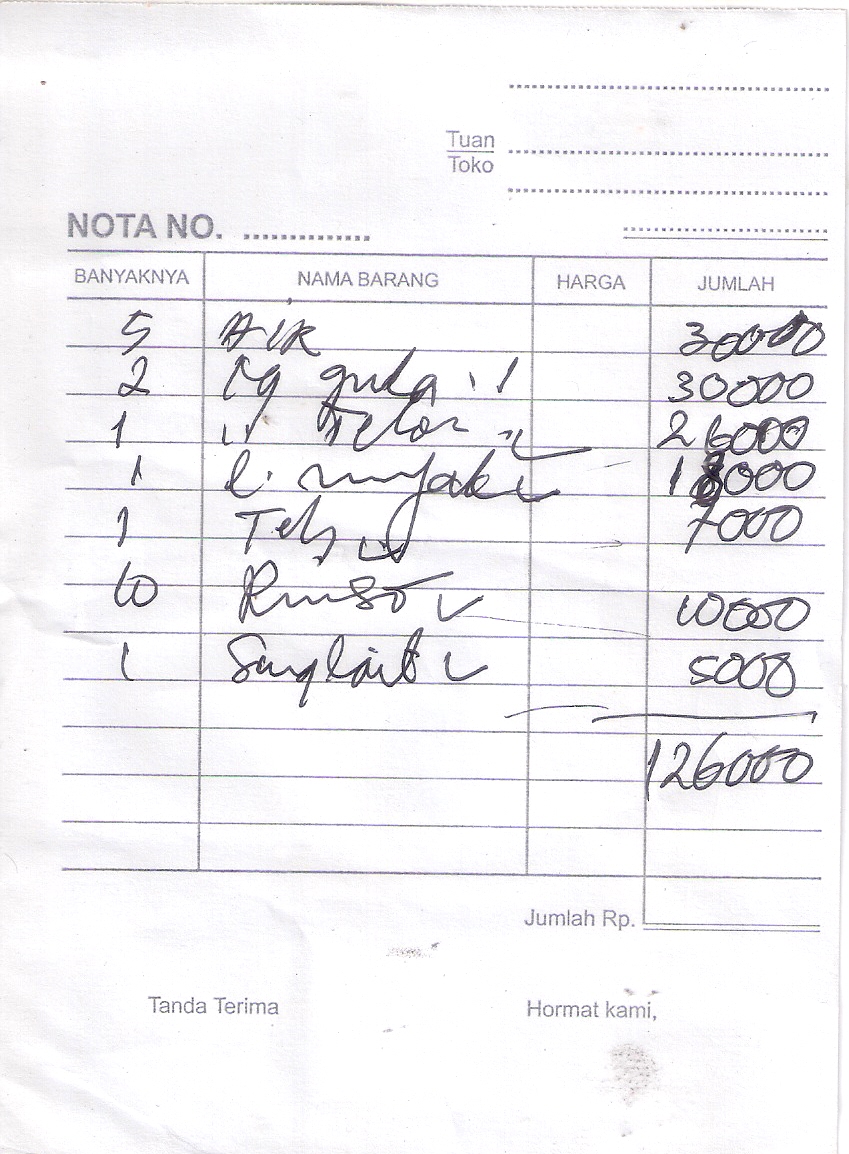 Tuan
Toko
NOTA NO. ..............
BANYAKNYA NAMA BARANG HARGA JUMLAH
5 AIR 30000
2 kg gula 30000
1 " Telor 26000
1 l. minyak 18000
1 Teh 7000
10 Rinso 10000
1 Sunglait 5000
126000
Jumlah Rp.
Tanda Terima Hormat kami,